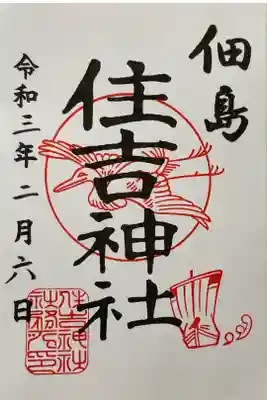 佃島
住吉神社
令和三年二月六日
住吉神社
社務所印